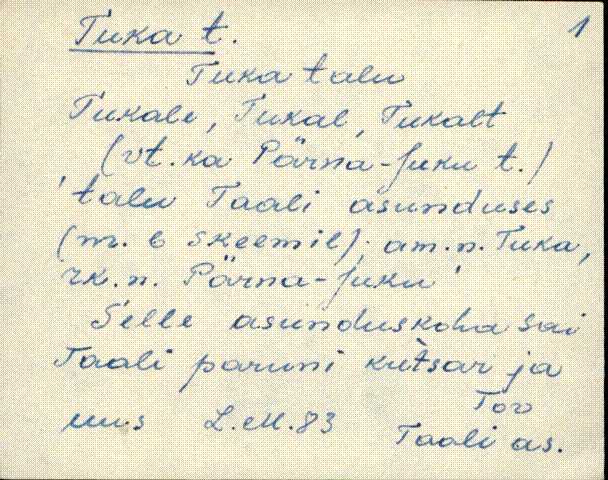 Tuka t. 1
Tuka talu
Tukale, Tukal, Tukalt
(vt. ka Pärna-Juku t.)
'talu Taali asunduses
(nr. 6 skeemil); am.n. Tuka,
rk.n. Pärna-Juku'
Selle asunduskoha sai
Taali paruni kutsar ja
Tor
L.M.83
Taali as.